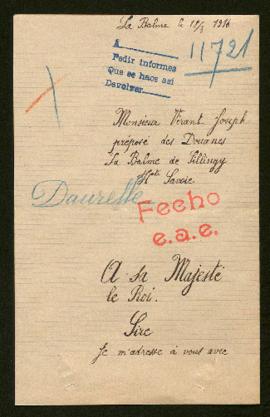 La Balme le 18/3 1916
11721
A
Pedir informes
Que se haga así
Devolver
Monsieur Vérant Joseph
préposé des Douanes
La Balme de Sillingy
Hte Savoie
Daurelle
Fecho
e.a.e.
A Sa Majesté
le Roi.
Sire
Je m'adresse à vous avec